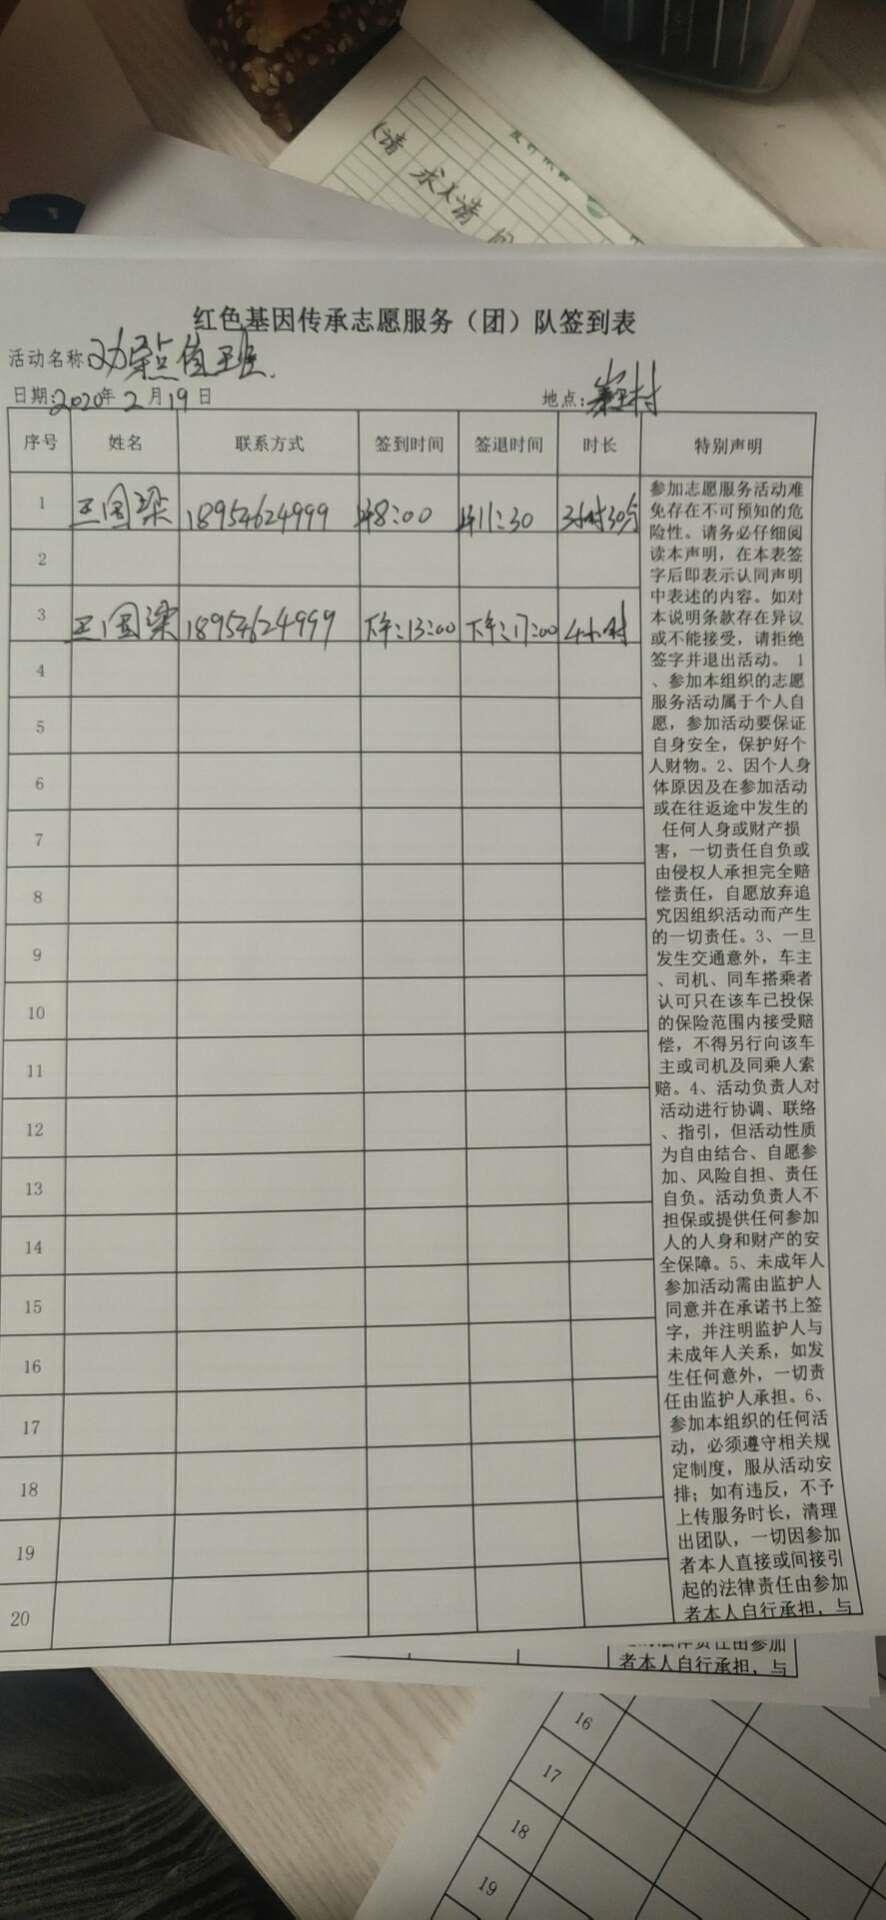 (请 求人请
红色基因传承志愿服务（团）队签到表
活动名称 劝荣点值班.
日期:2020年2月19日 地点:村
序号 姓名 联系方式 签到时间 签退时间 时长 特别声明
1 王国梁 18954624999 上午8:00 上午11:30 3小时30分
2
3 王国梁 18954624999 下午:13:00 下午:17:00 4小时
4
5
6
7
8
9
10
11
12
13
14
15
16
17
18
19
20
参加志愿服务活动难
免存在不可预知的危
险性。请务必仔细阅
读本声明，在本表签
字后即表示认同声明
中表述的内容。如对
本说明条款存在异议
或不能接受，请拒绝
签字并退出活动。 1
、参加本组织的志愿
服务活动属于个人自
愿，参加活动要保证
自身安全，保护好个
人财物。2、因个人身
体原因及在参加活动
或在往返途中发生的
任何人身或财产损
害，一切责任自负或
由侵权人承担完全赔
偿责任，自愿放弃追
究因组织活动而产生
的一切责任。3、一旦
发生交通意外，车主
、司机、同车搭乘者
认可只在该车已投保
的保险范围内接受赔
偿，不得另行向该车
主或司机及同乘人索
赔。4、活动负责人对
活动进行协调、联络
、指引，但活动性质
为自由结合、自愿参
加、风险自担、责任
自负。活动负责人不
担保或提供任何参加
人的人身和财产的安
全保障。5、未成年人
参加活动需由监护人
同意并在承诺书上签
字，并注明监护人与
未成年人关系，如发
生任何意外，一切责
任由监护人承担。6、
参加本组织的任何活
动，必须遵守相关规
定制度，服从活动安
排；如有违反，不予
上传服务时长，清理
出团队，一切因参加
者本人直接或间接引
起的法律责任由参加
者本人自行承担，与
起的法律责任由参加
者本人自行承担，与
16
17
18
19